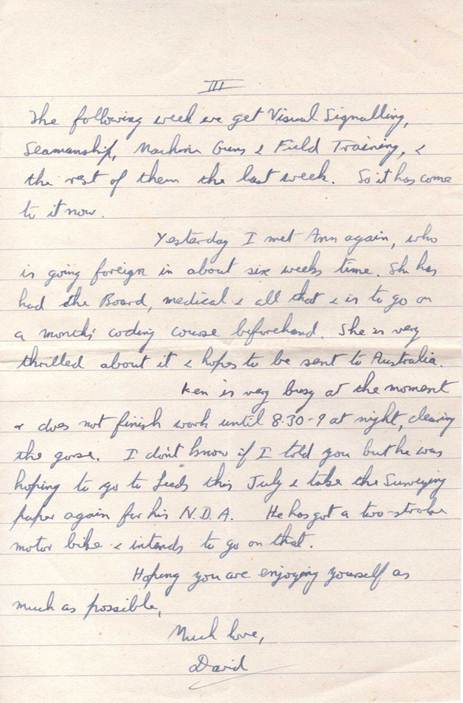 III
The following week we get Visual Signalling,
Seamanship, Machine Guns & Field Training, &
the rest of them the last week. So it has come
to it now.
Yesterday I met Ann again, who
is going foreign in about six weeks time. She has
had the Board, medical & all that & is to go on
a months' coding course beforehand. She is very
thrilled about it & hopes to be sent to Australia.
Ken is very busy at the moment
& does not finish work until 8.30-9 at night, clearing
the gorse. I don't know if I told you but he was
hoping to go to Leeds this July & take the Surveying
paper again for his N.D.A. He has got a two-stroke
motor bike & intends to go on that.
Hoping you are enjoying yourself as
much as possible,
Much love,
David